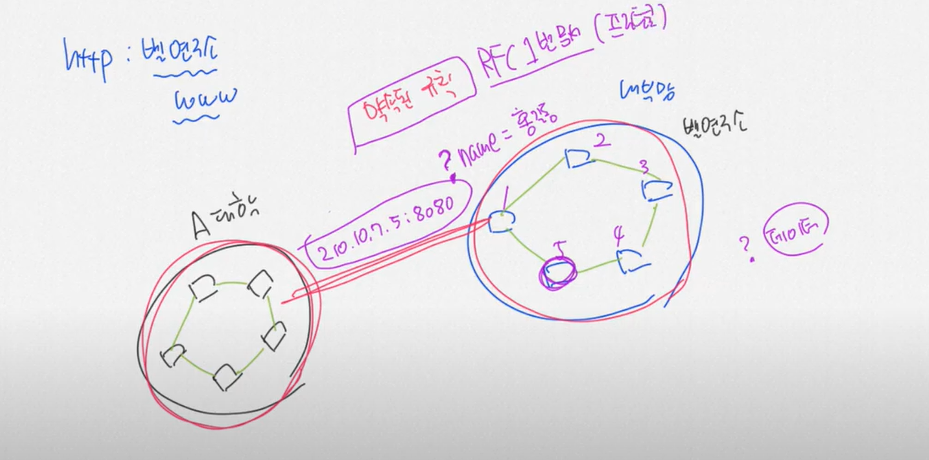 http : 벨연구소
www
약속된 규칙
RFC 1번 문서 (프로토콜)
내부망
벨연구소
? name = 홍길동
210.10.7.5:8080
A대학
1
2
3
4
5
? 데이터